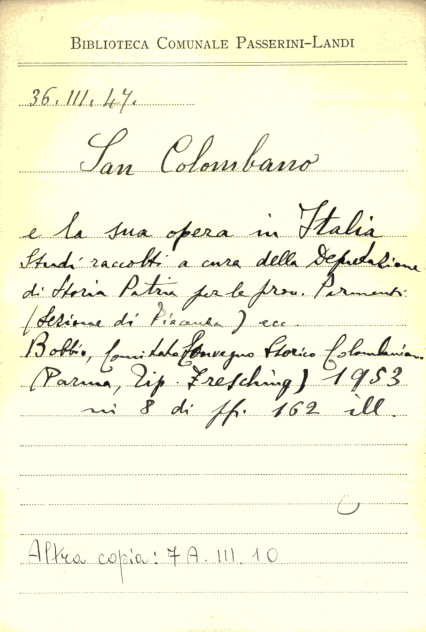 BIBLIOTECA COMUNALE PASSERINI-LANDI
36.III.47.
San Colombano
e la sua opera in Italia
Studi raccolti a cura della Deputazione
di Storia Patria per le prov. Parmensi
(Sezione di Piacenza) ecc.
Bobbio, Comitato Convegno Storico Colombaniano
(Parma, Tip. Fresching) 1953
in 8 di pp. 162 ill.
Altra copia: 7A.III.10